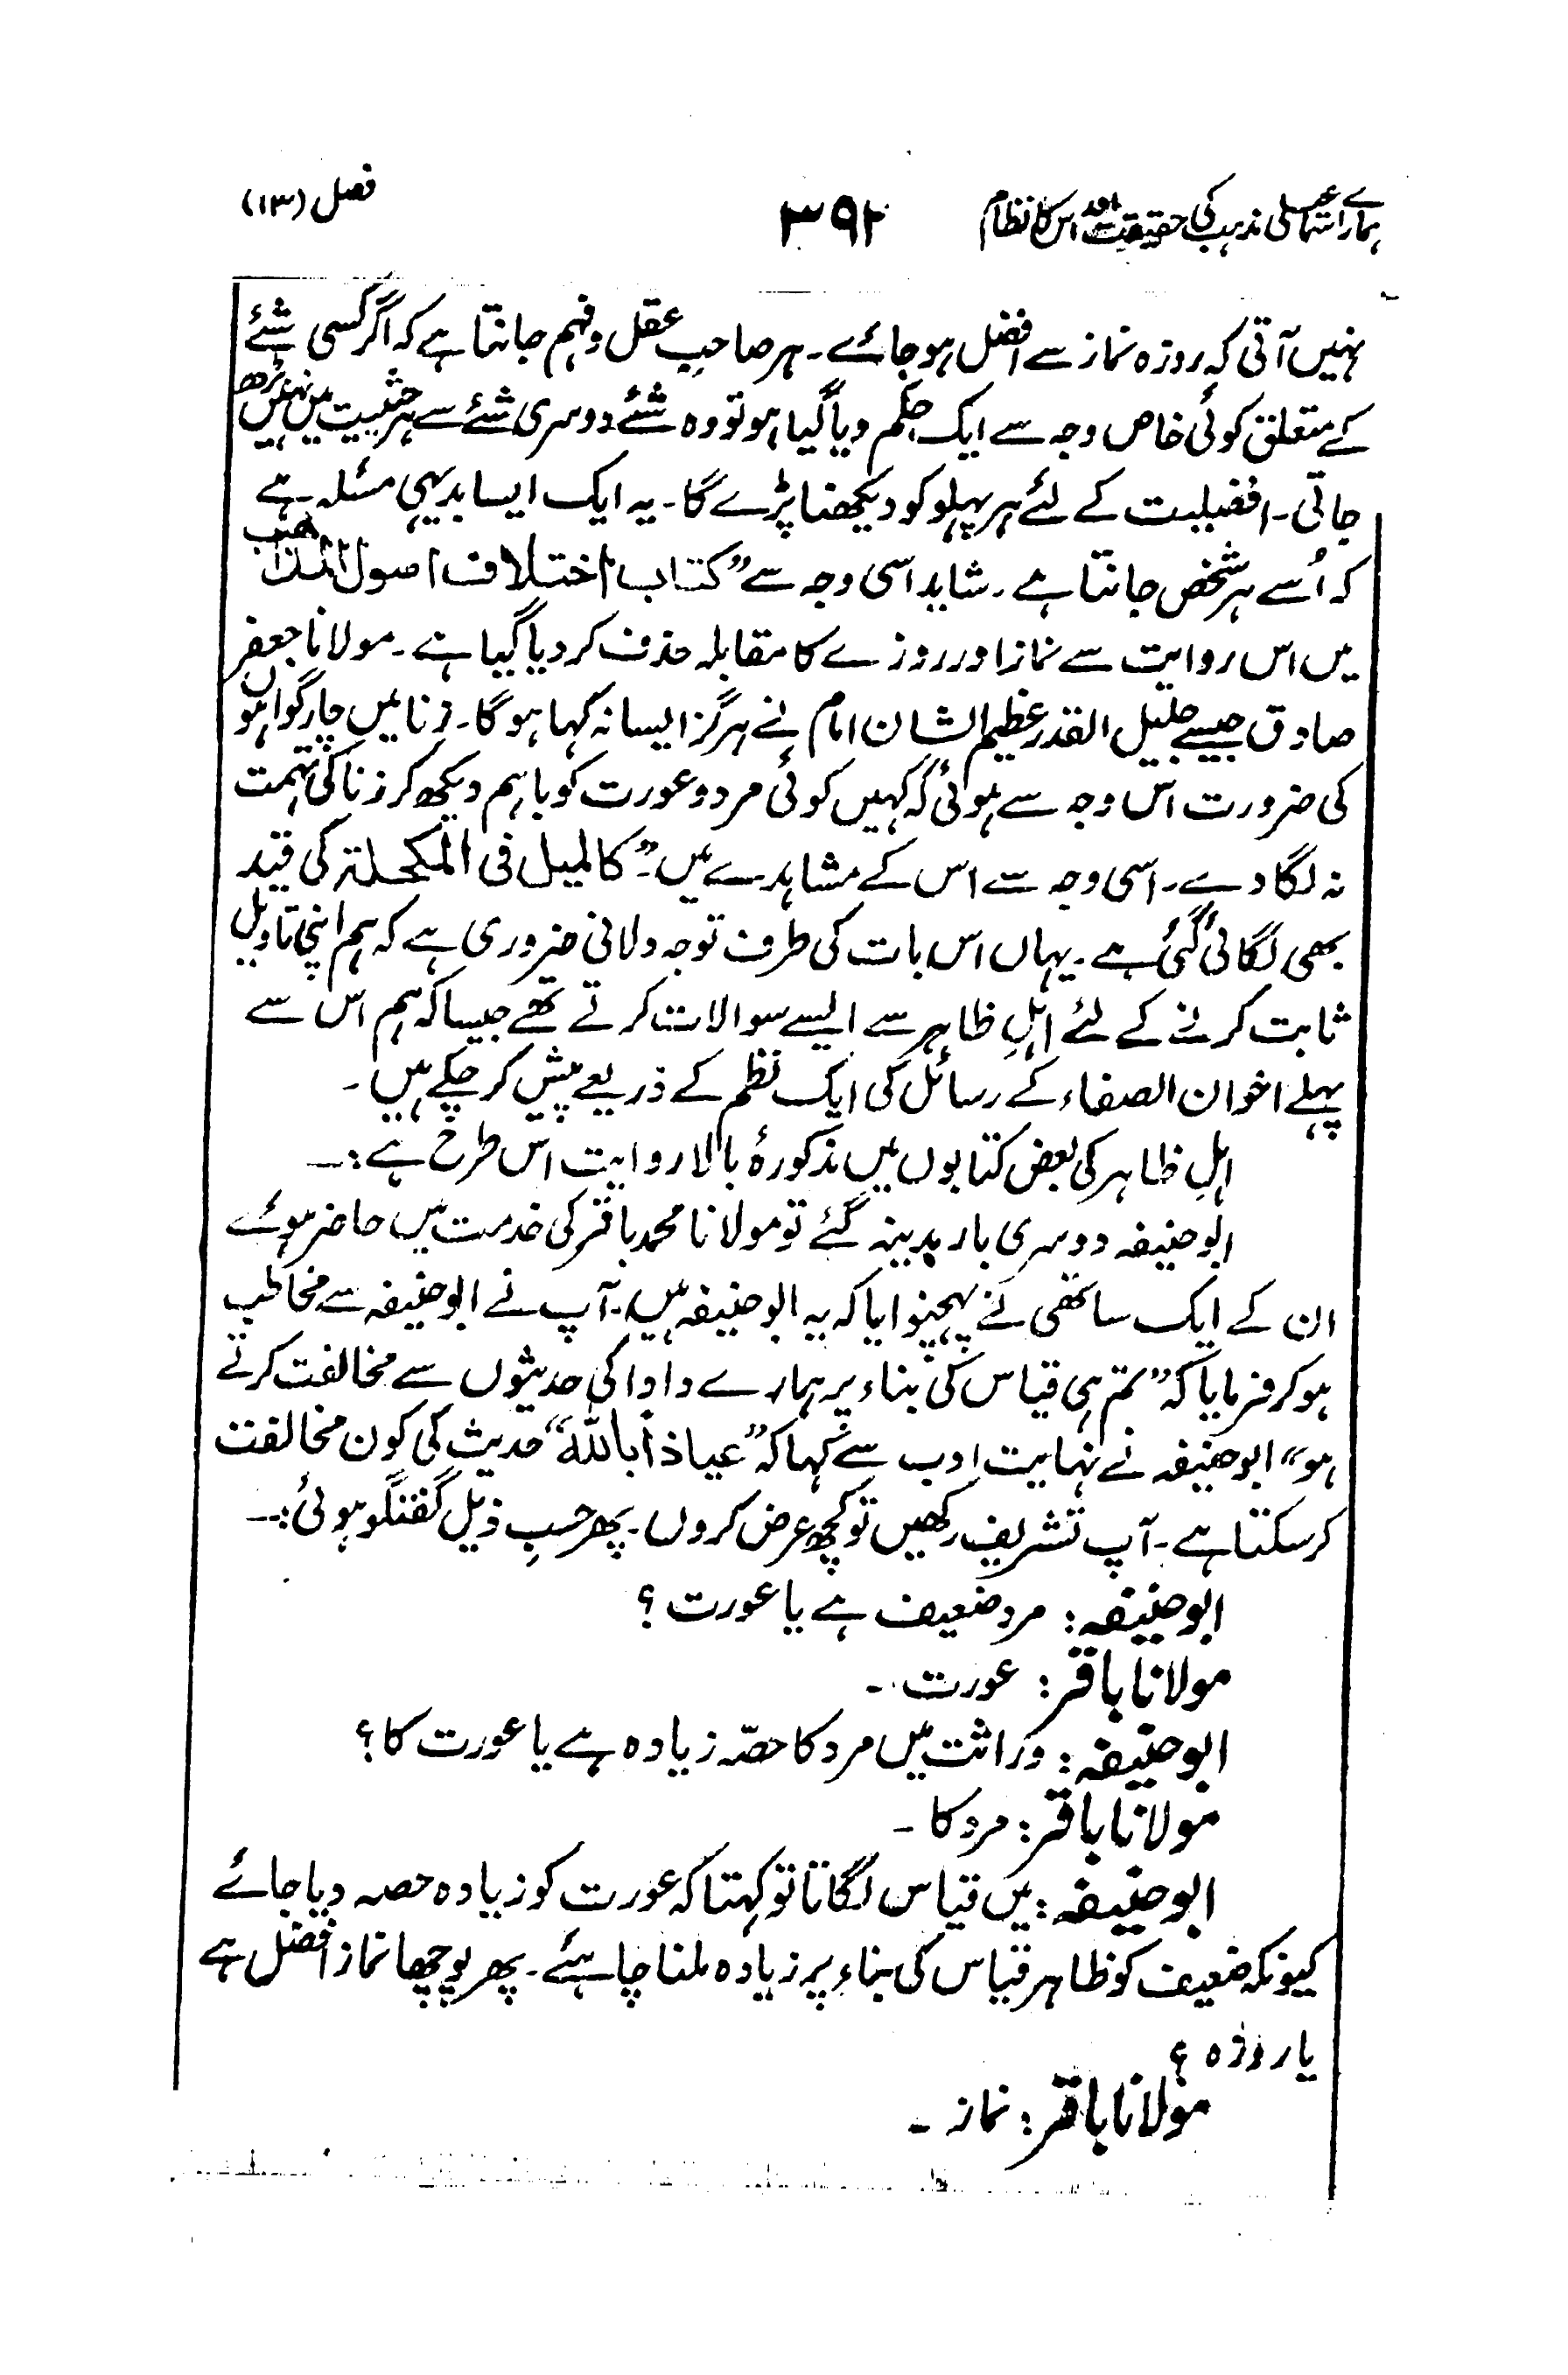 ہمارے اسماعیلی مذہب کی حقیقت اور اس کا نظام
۳۹۲
فصل (۱۳)
نہیں آتی کہ روزہ نماز سے افضل ہو جائے۔ ہر صاحبِ عقل و فہم جانتا ہے کہ اگر کسی شئے
کے متعلق کوئی خاص وجہ سے ایک حکم دیا گیا ہو تو وہ شئے دوسری شئے سے ہر حیثیت میں نہیں بڑھ
جاتی۔ افضلیت کے لئے ہر پہلو کو دیکھنا پڑے گا۔ یہ ایک ایسا بدیہی مسئلہ ہے
کہ اُسے ہر شخص جانتا ہے۔ شاید اسی وجہ سے ”کتاب اختلاف اصول المذاھب
میں اس روایت سے نماز اور روزے کا مقابلہ حذف کر دیا گیا ہے۔ مولانا جعفر
صادق جیسے جلیل القدر عظیم الشان امام نے ہرگز ایسا نہ کہا ہو گا۔ زنا میں چار گواہوں
کی ضرورت اس وجہ سے ہوئی کہ کہیں کوئی مرد و عورت کو باہم دیکھ کر زنا کی تہمت
نہ لگا دے۔ اسی وجہ سے اس کے مشاہدے میں ”کالمیل فی المکحلۃ کی قید
بھی لگائی گئی ہے۔ یہاں اس بات کی طرف توجہ دلانی ضروری ہے کہ ہم اپنی تاویل
ثابت کرنے کے لئے اہلِ ظاہر سے ایسے سوالات کرتے تھے جیسا کہ ہم اس سے
پہلے اخوان الصفاء کے رسائل کی ایک نظم کے ذریعے پیش کر چکے ہیں۔
اہلِ ظاہر کی بعض کتابوں میں مذکورۂ بالا روایت اس طرح ہے:۔
ابو حنیفہ دوسری بار مدینہ گئے تو مولانا محمد باقر کی خدمت میں حاضر ہوئے
ان کے ایک ساتھی نے پہچنوایا کہ یہ ابو حنیفہ ہیں۔ آپ نے ابو حنیفہ سے مخاطب
ہو کر فرمایا کہ ”تم ہی قیاس کی بناء پر ہمارے دادا کی حدیثوں سے مخالفت کرتے
ہو“ ابو حنیفہ نے نہایت ادب سے کہا کہ ”عیاذاً باللہ“ حدیث کی کون مخالفت
کر سکتا ہے۔ آپ تشریف رکھیں تو کچھ عرض کروں۔ پھر حسبِ ذیل گفتگو ہوئی:۔
ابو حنیفہ: مرد ضعیف ہے یا عورت؟
مولانا باقر: عورت۔
ابو حنیفہ: وراثت میں مرد کا حصّہ زیادہ ہے یا عورت کا؟
مولانا باقر: مرد کا۔
ابو حنیفہ: میں قیاس لگاتا تو کہتا کہ عورت کو زیادہ حصہ دیا جائے
کیونکہ ضعیف کو ظاہر قیاس کی بناء پر زیادہ ملنا چاہئے۔ پھر پوچھا نماز افضل ہے
یا روزہ؟
مولانا باقر: نماز۔